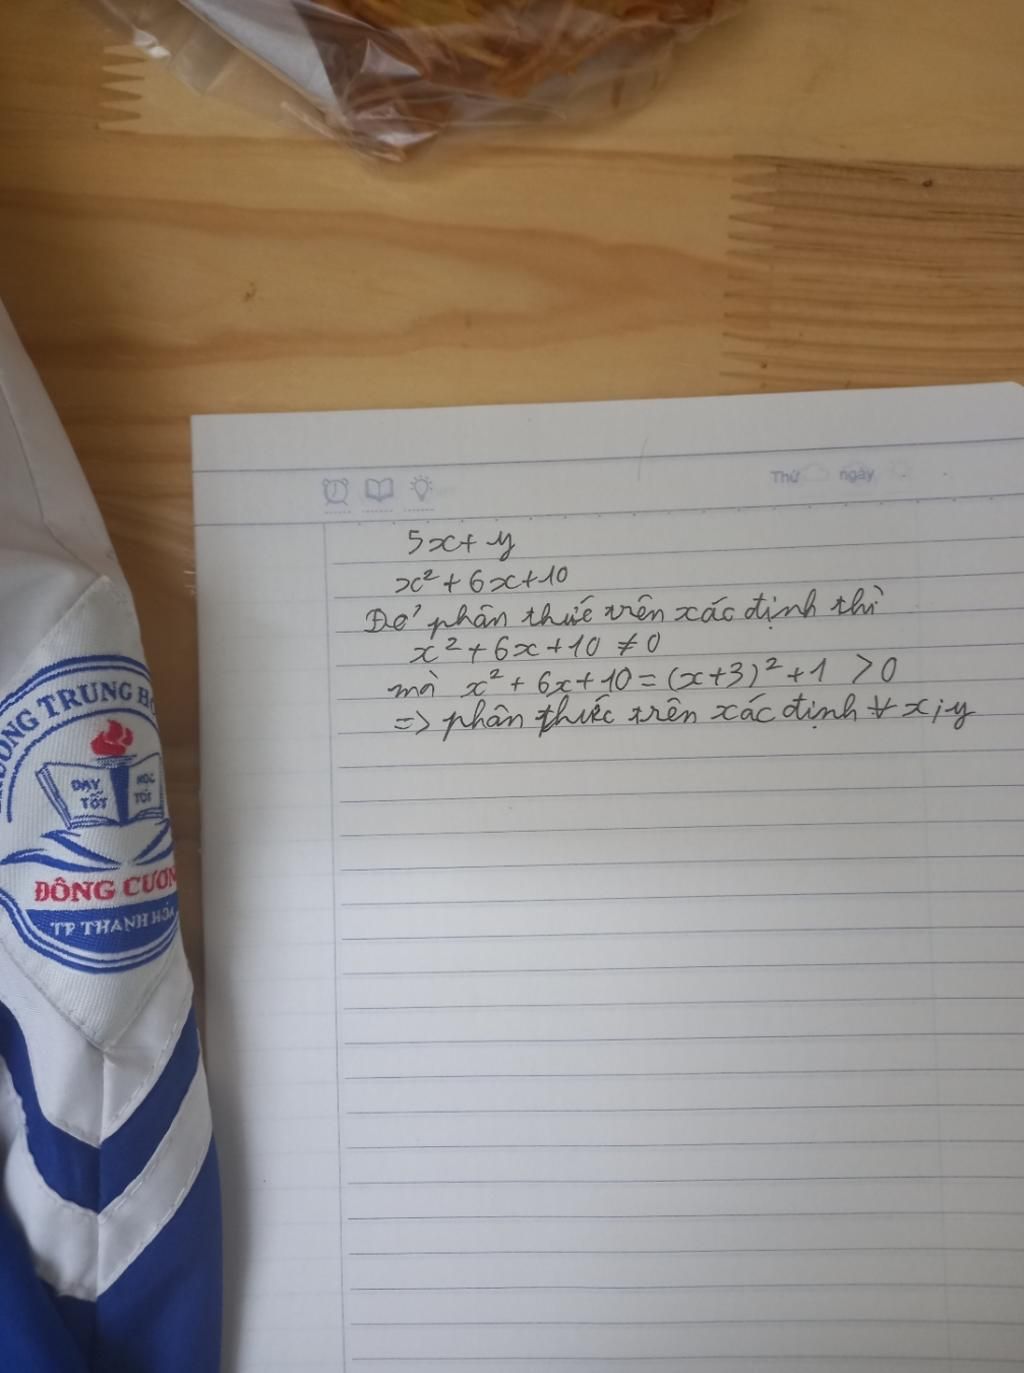 Thứ ngày
5x+y
x²+6x+10
Để phân thức trên xác định thì
x²+6x+10 ≠0
mà x²+6x+10=(x+3)²+1 >0
=> phân thức trên xác định ∀ x;y
TRUNG
DẠY TỐT
HỌC TỐT
ĐÔNG CƯƠN
TP THANH HÓA